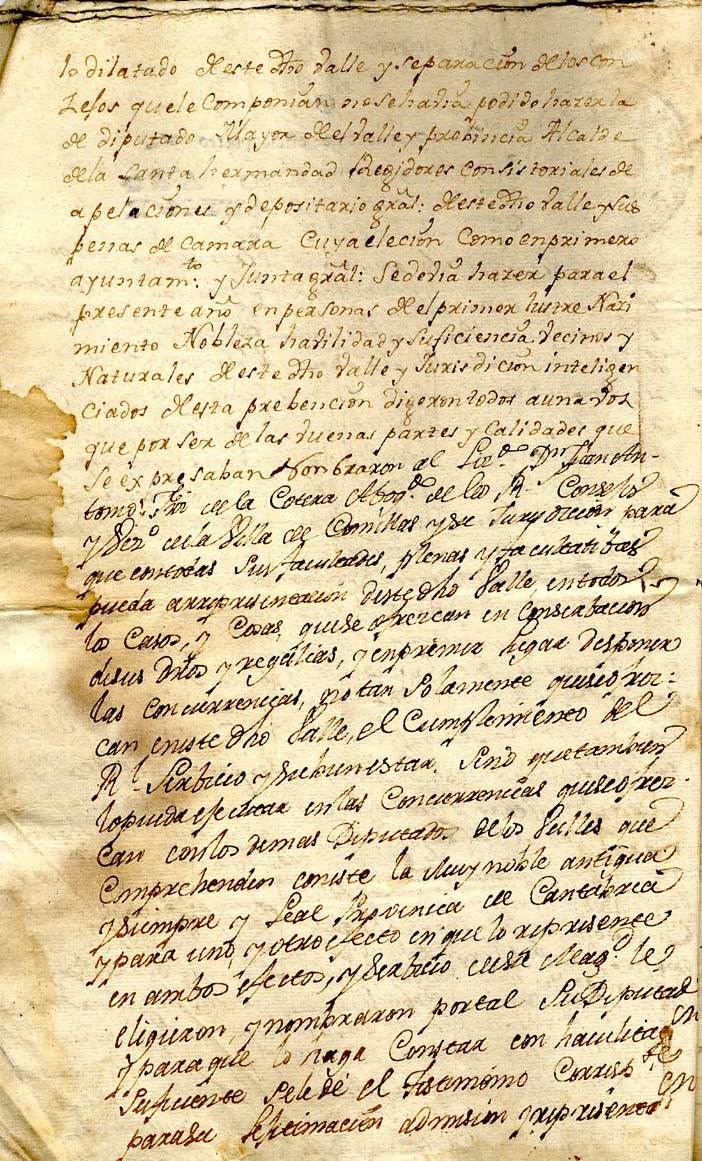 lo dilatado deste dho Valle y separación de los con
zejos que le Componían no se havía podido hazer la
de diputado Mayor del Valle y probincia Alcalde
de la Santa hermandad Regidores Consistoriales de
apelaciones y depositario grãl: deste dho Valle y sus
penas de Camara Cuya eleción Como en primero
ayuntam.to y Junta grãl: se devía hazer para el
presente año en personas del primer lustre Naci
miento Nobleza havilidad y suficiencia Vecinos y
Naturales deste dho Valle y Jurisdición inteligen
ciados desta prebención digeron todos a una Vos
que por ser de las buenas partes y Calidades que
se expresaban Nombraron al Lic.do Dn Juan An-
tonio de la Cotera Abog.do de los R.s Consejos
y Vez.o de la Villa de Comillas y su Jurisdiccion para
que con todas sus facultades, plenas y facultatibas
pueda en representación deste dho Valle, en todos
los Casos, y Cosas, que se ofrezcan en Conserbación
de sus dros y regalias, y en primer lugar
las concurrencias, no tan solamente que se ofrez-
can en este dho Valle, el Cumplimiento del
R.l Serbicio y su bienestar Sino que tambien
lo pueda executar en las Concurrencias que se ofrez-
can con los demas Diputados de los Valles que
Comprehenden con este la Muy noble antigua
y siempre y Leal Provincia de Cantabria
y para uno, y otro efecto en que lo represente
en ambos efectos, y Serbicio de su Mag.d le
eligieron, y nombraron por tal su Diputado
y para que lo haga Constar con havilitaon
suficiente se le dé el Testimonio Corresp.te
para su lexitimación admisión y represente